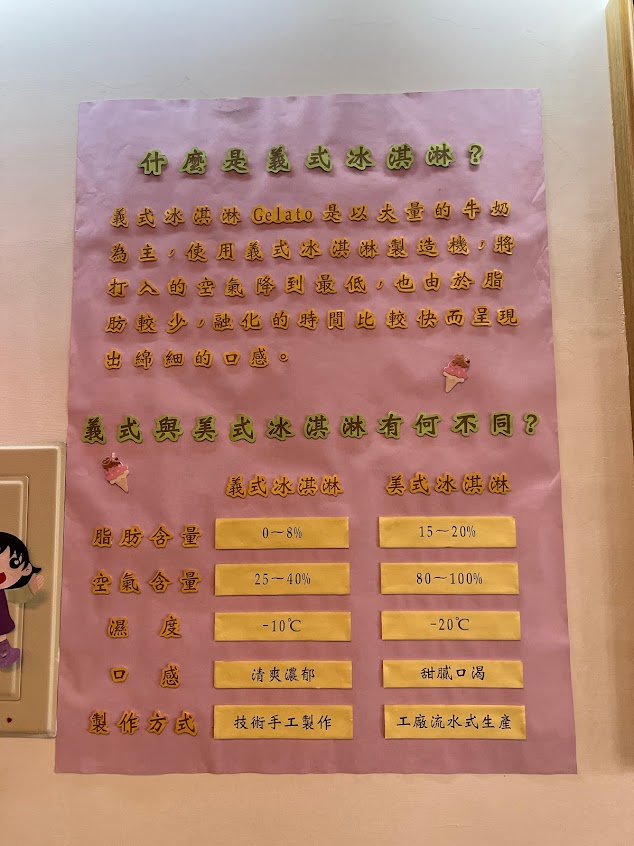 什麼是義式冰淇淋？
義式冰淇淋Gelato是以大量的牛奶
為主，使用義式冰淇淋製造機，將
打入的空氣降到最低，也由於脂
肪較少，融化的時間比較快而呈現
出綿細的口感。
義式與美式冰淇淋有何不同？
義式冰淇淋 美式冰淇淋
脂肪含量 0～8% 15～20%
空氣含量 25～40% 80～100%
濕度 -10℃ -20℃
口感 清爽濃郁 甜膩口渴
製作方式 技術手工製作 工廠流水式生產